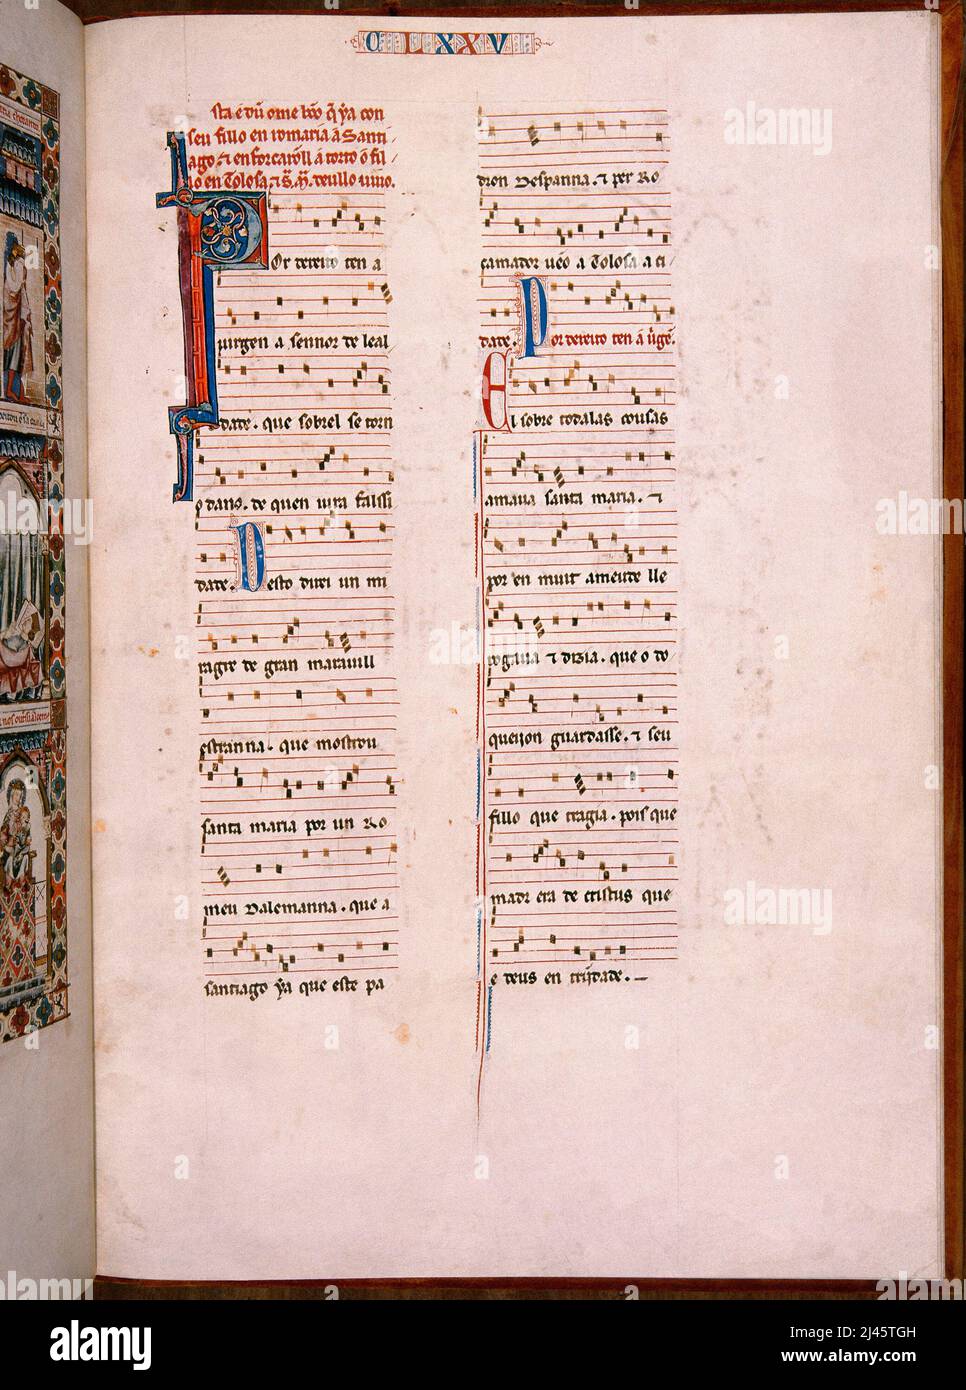 C L X X V
sta é dũ ome bõo q̃ ýa con
seu fillo en romaria a Santi-
ago. ⁊ enforcarõll a torto o fil-
lo en Tolosa. ⁊ S. M. deullo uiuo.
Por dereito ten a
uirgen a sennor de leal
dade. que sobrel se torn
o dano. de quen iura falssi
dade. Desto direi un mi
ragre de gran marauill
estranna. que mostrou
santa maria por un Ro
meu Dalemanna. que a
santiago ýa que este pa
dron Despanna. ⁊ per Ro
camador uẽo a Tolosa a ci-
dade. Por dereito ten a ũgẽ.
El sobre todalas cousas
amaua santa maria. ⁊
por en muit ameude lle
rogaua ⁊ dizia. que o do
queijon guardasse. ⁊ seu
fillo que tragia. pois que
madr era de cristus que
e deus en trijdade.
alamy
Image ID: 2J45TGH
www.alamy.com